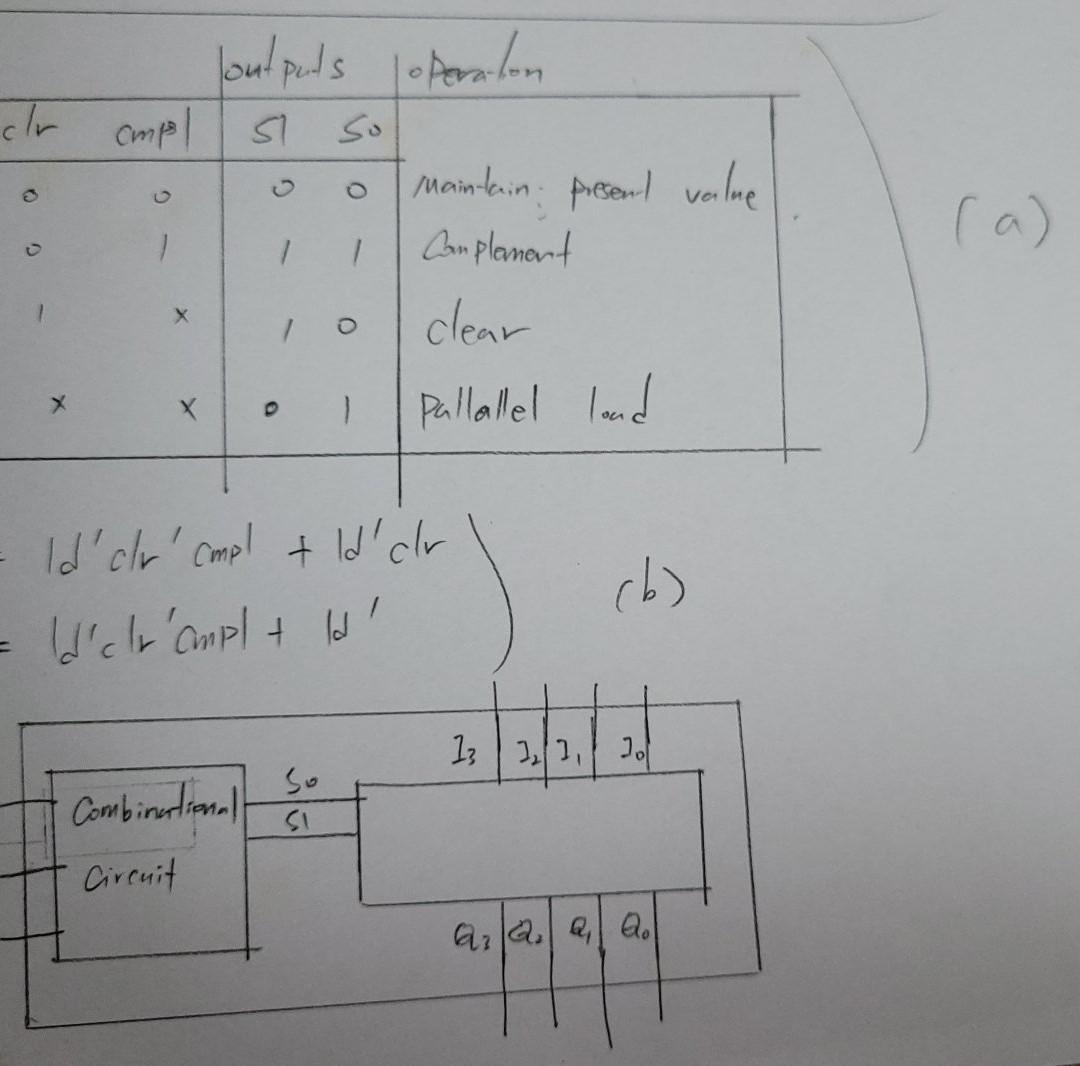 outputs operation
clr cmpl S1 S0
0 0 0 0 Maintain: present value
0 1 1 1 Complement
(a)
1 x 1 0 clear
x x 0 1 Pallallel load
= ld'clr'cmpl + ld'clr
= ld'clr'cmpl + ld'
(b)
I3 I2 I1 I0
Combinational S0
S1
Circuit
Q3 Q2 Q1 Q0